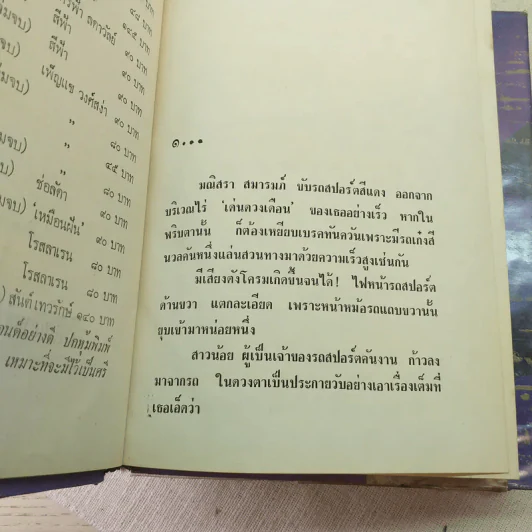 ลดาวัลย์
๔๘ บาท
สีฟ้า
๑๔๕ บาท
สีฟ้า
๙๐ บาท
๙๐ บาท
เพ็ญแข วงศ์สง่า
๙๐ บาท
"
๙๐ บาท
"
๘๐ บาท
"
๔๕ บาท
ช่อลัดา
๘๐ บาท
'เหมือนฝัน'
๙๐ บาท
โรสลาเรน
๙๐ บาท
โรสลาเรน
๘๐ บาท
๘๐ บาท
สันต์เทวารักษ์ ๑๔๐ บาท
อย่างดี ปกหุ้มพิมพ์
เหมาะที่จะมีไว้เป็นศรี
๑...
มณิสรา สมารมภ์ ขับรถสปอร์ตสีแดง ออกจาก
บริเวณไร่ 'เด่นดวงเดือน' ของเธออย่างเร็ว หากใน
พริบตานั้น ก็ต้องเหยียบเบรคทันควันเพราะมีรถเก๋งสี
นวลคันหนึ่งแล่นสวนทางมาด้วยความเร็วสูงเช่นกัน
มีเสียงดังโครมเกิดขึ้นจนได้! ไฟหน้ารถสปอร์ต
ด้านขวา แตกละเอียด เพราะหน้าหม้อรถแถบขวานั้น
ยุบเข้ามาหน่อยหนึ่ง
สาวน้อย ผู้เป็นเจ้าของรถสปอร์ตคันงาม ก้าวลง
มาจากรถ ในดวงตาเป็นประกายวับอย่างเอาเรื่องเต็มที่
เธอเอ็ดว่า